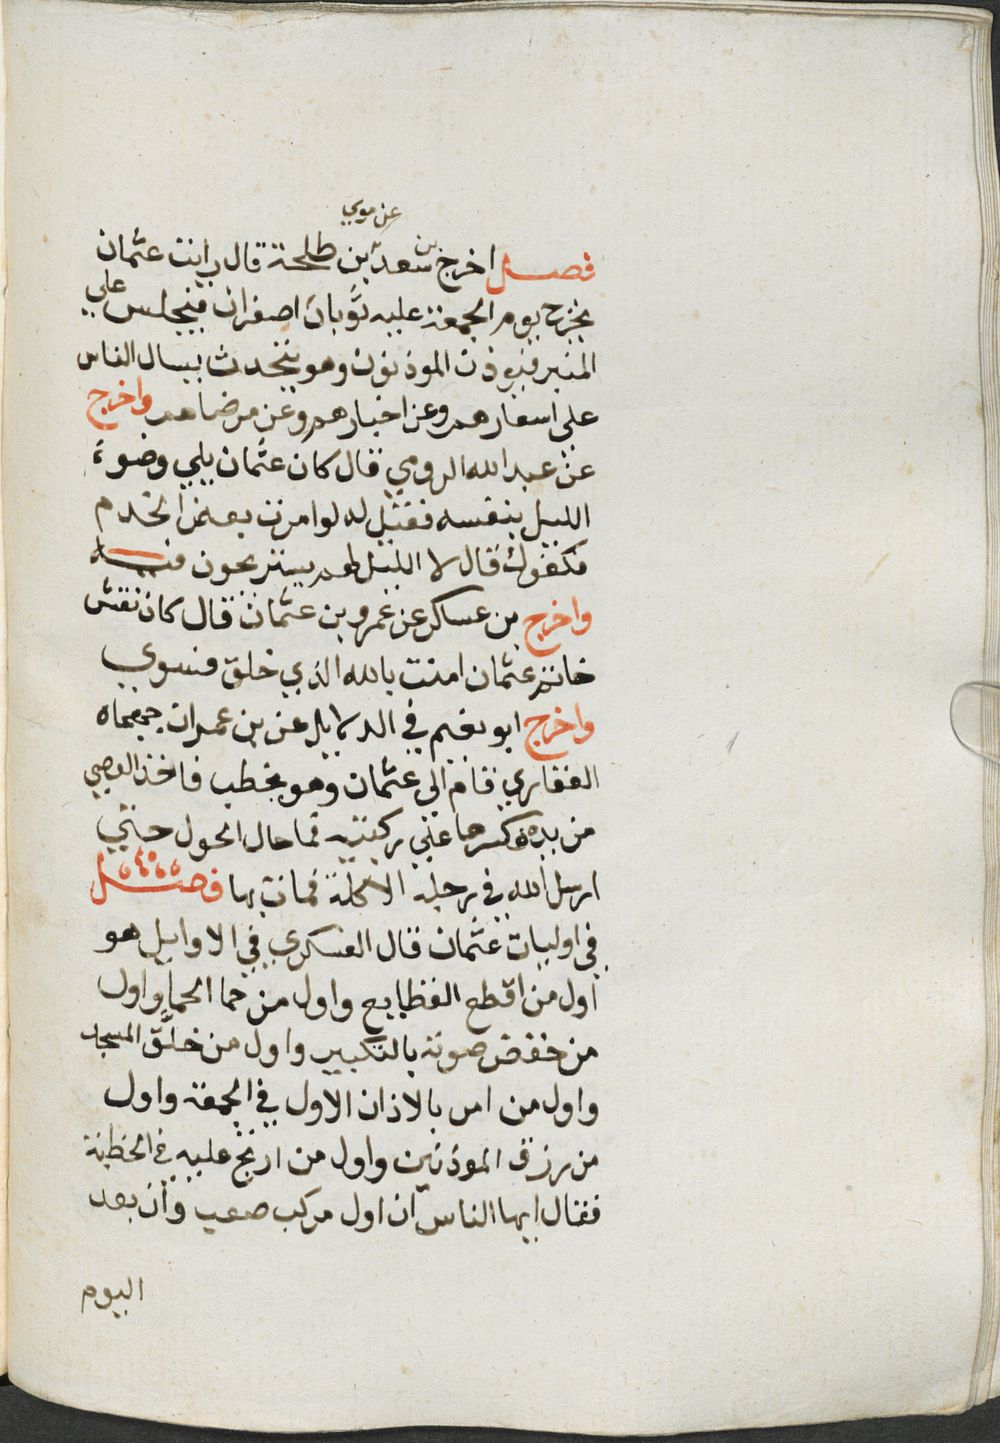 عن موسي
فصل اخرج بن سعد بن طلحة قال رايت عثمان
يخرج يوم الجمعة عليه ثوبان اصفران فيجلس علي
المنبر فيوذن الموذنون وهو يتحدث يسال الناس
على اسعارهم وعن اخبارهم وعن مرضاهم واخرج
عن عبد الله الرومي قال كان عثمان يلي وضوء
الليل بنفسه فقيل له لو امرت بعض الخدم
فكفوك قال لا الليل لهم يستريحون فيه
واخرج بن عساكر عن عمرو بن عثمان قال كان نقش
خاتم عثمان امنت بالله الذي خلق فسوي
واخرج ابو نعيم في الدلايل عن بن عمران جهجاه
الغفاري قام الى عثمان وهو يخطب فاخذ العصي
من يده فكسرها علي ركبتيه فما حال الحول حتي
ارسل الله في رجله الاكلة فمات بها فصل
في اوليات عثمان قال العسكري في الاوايل هو
اول من اقطع القطايع واول من حما الحما واول
من خفض صوته بالتكبير واول من خلق المسجد
واول من امر بالاذان الاول في الجمعة واول
من رزق الموذنين واول من ارتج عليه في الخطبة
فقال ايها الناس ان اول مركب صعب وان بعد
اليوم